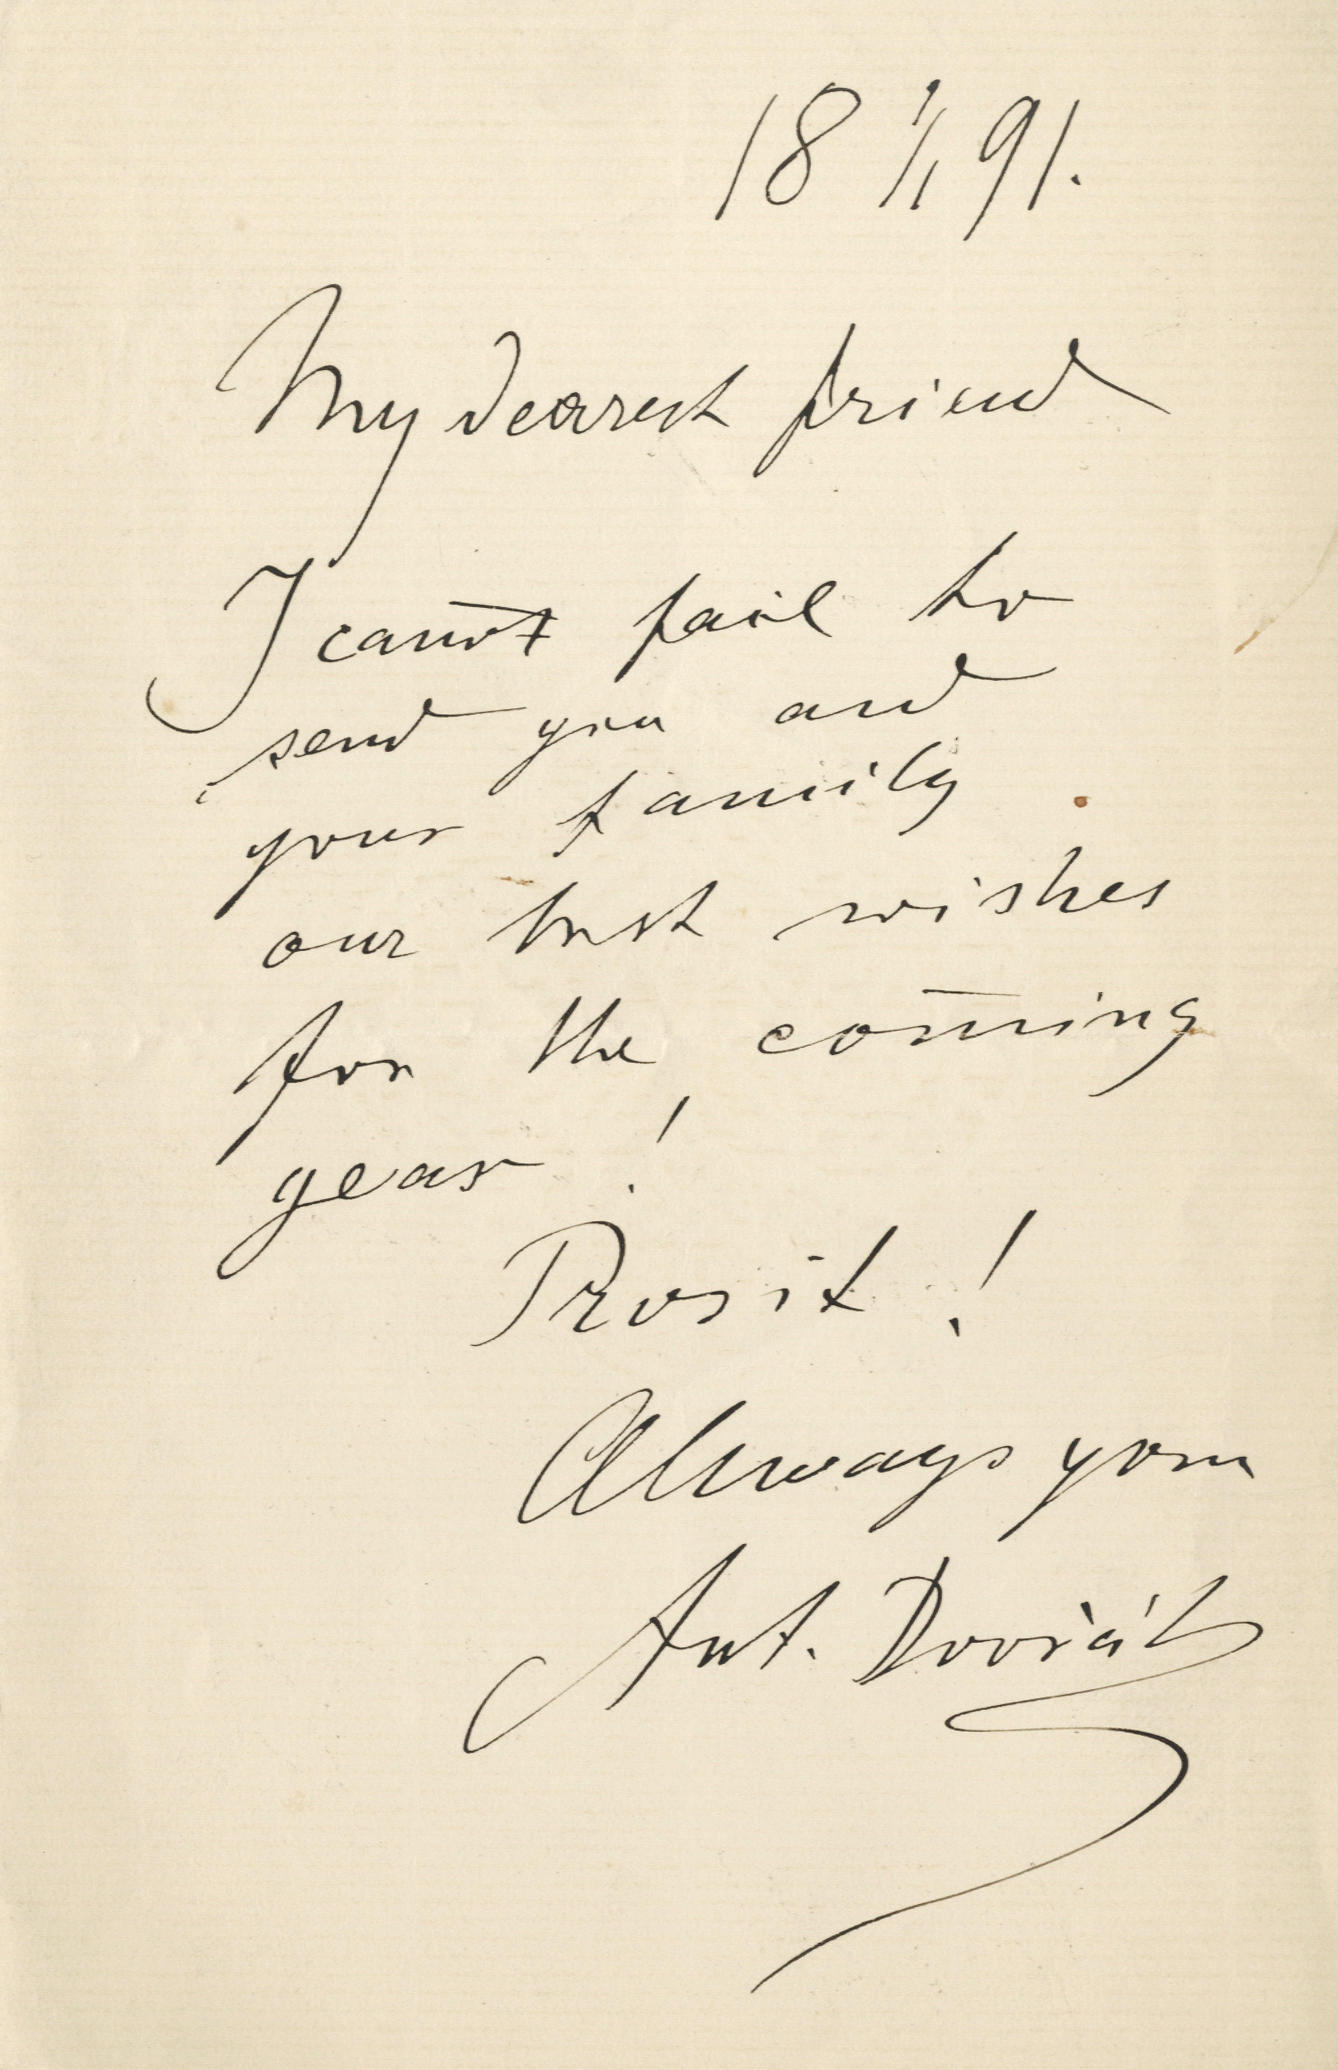 18 1/1 91.
My dearest friend
I can̄ot fail to
send you and
your family
our best wishes
for the com̄ing
year!
Prosit!
Always your
Ant. Dvořák